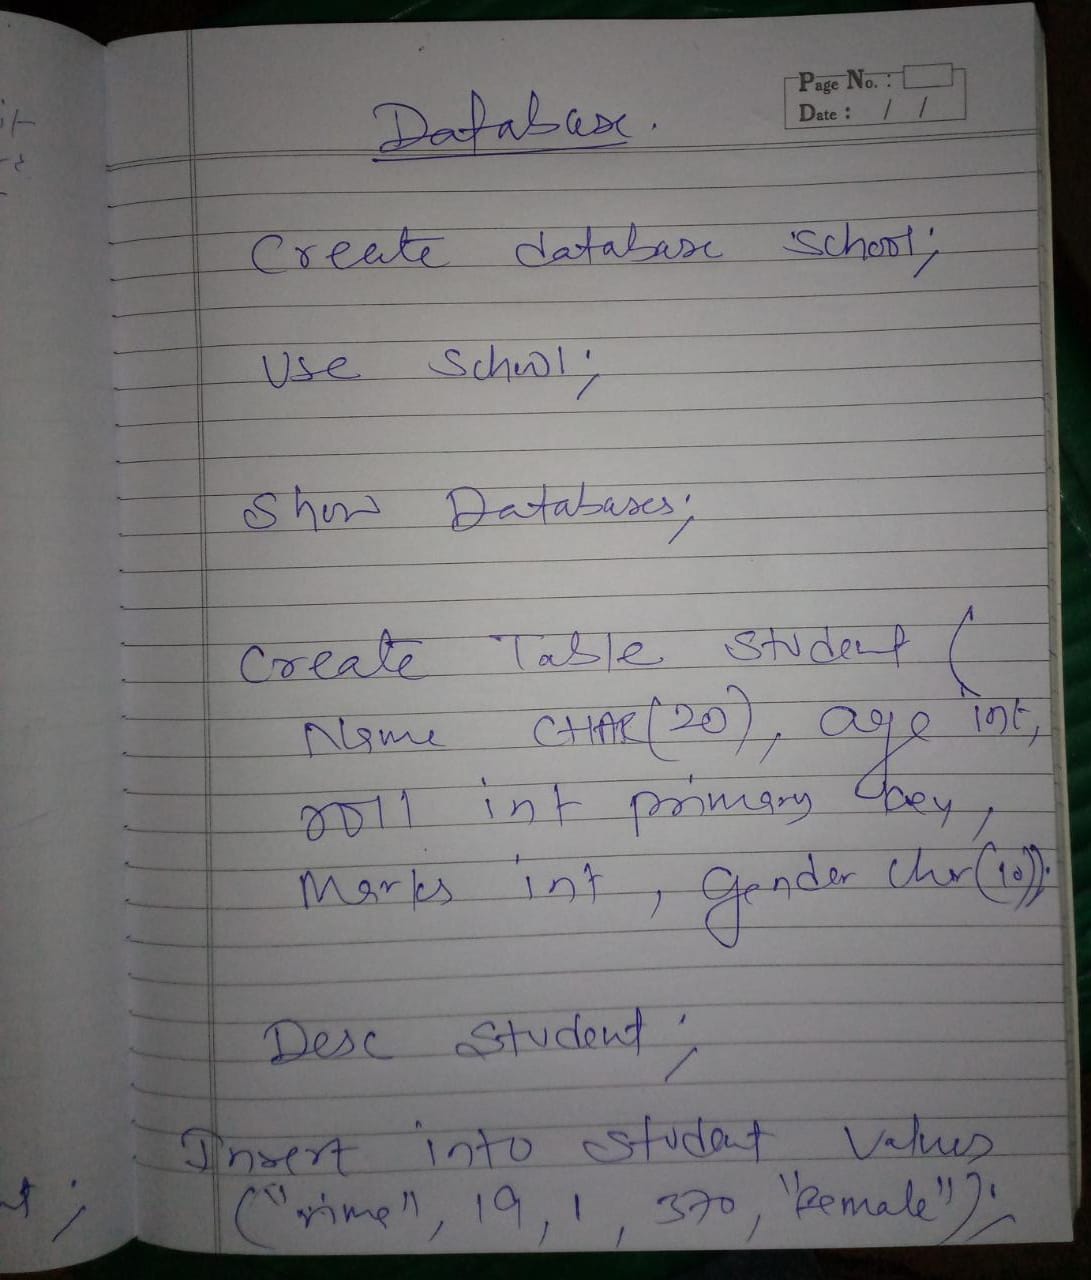 Page No. :
Date : / /
Database.
Create database school;
Use School;
Show Databases;
Create Table Student (
Name CHAR(20), age int,
roll int primary key,
Marks int, gender Char(10));
Desc Student;
Insert into Student Values
("rime", 19, 1, 370, "Female");